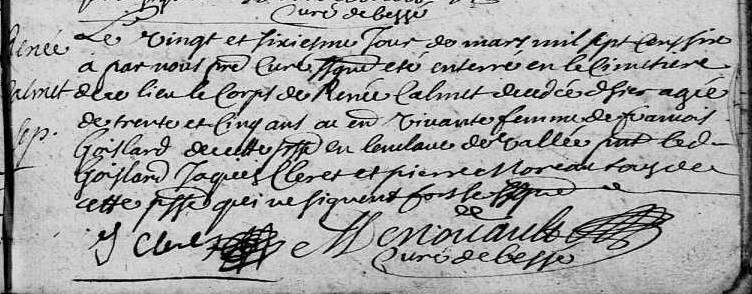 Curé de besse
Le vingt et sixiesme Jour de mars mil sept cens six
Renée
a par nous pre Curé ssigné ete enterré en le Cimetiere
Calmet
de ce lieu le Corps de Renée Calmet decedée d'hier agée
sep.
de trente et Cinq ans ou en vivante femme de francois
Goislard de cette psse en lenclave de vallée pnt led
Goislard Jaques Cleret et pierre Moreau tous de
cette psse qui ne signent fors le ssigné
J Cleret Menouault
Curé de besse